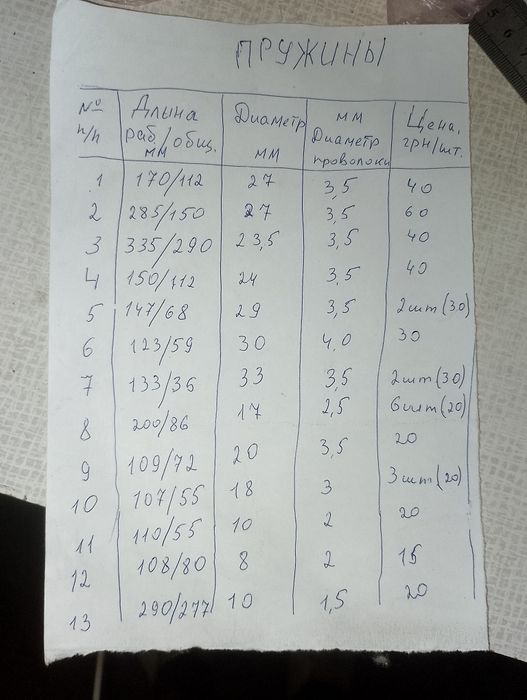 ПРУЖИНЫ
№ п/п Длина раб/общ. мм Диаметр мм мм Диаметр проволоки Цена, грн/шт.
1 170/112 27 3,5 40
2 285/150 27 3,5 60
3 335/290 23,5 3,5 40
4 150/112 24 3,5 40
5 147/68 29 3,5 2шт(30)
6 123/59 30 4,0 30
7 133/36 33 3,5 2шт(30)
8 200/86 17 2,5 6шт(20)
9 109/72 20 3,5 20
10 107/55 18 3 3шт(20)
11 110/55 10 2 20
12 108/80 8 2 15
13 290/277 10 1,5 20